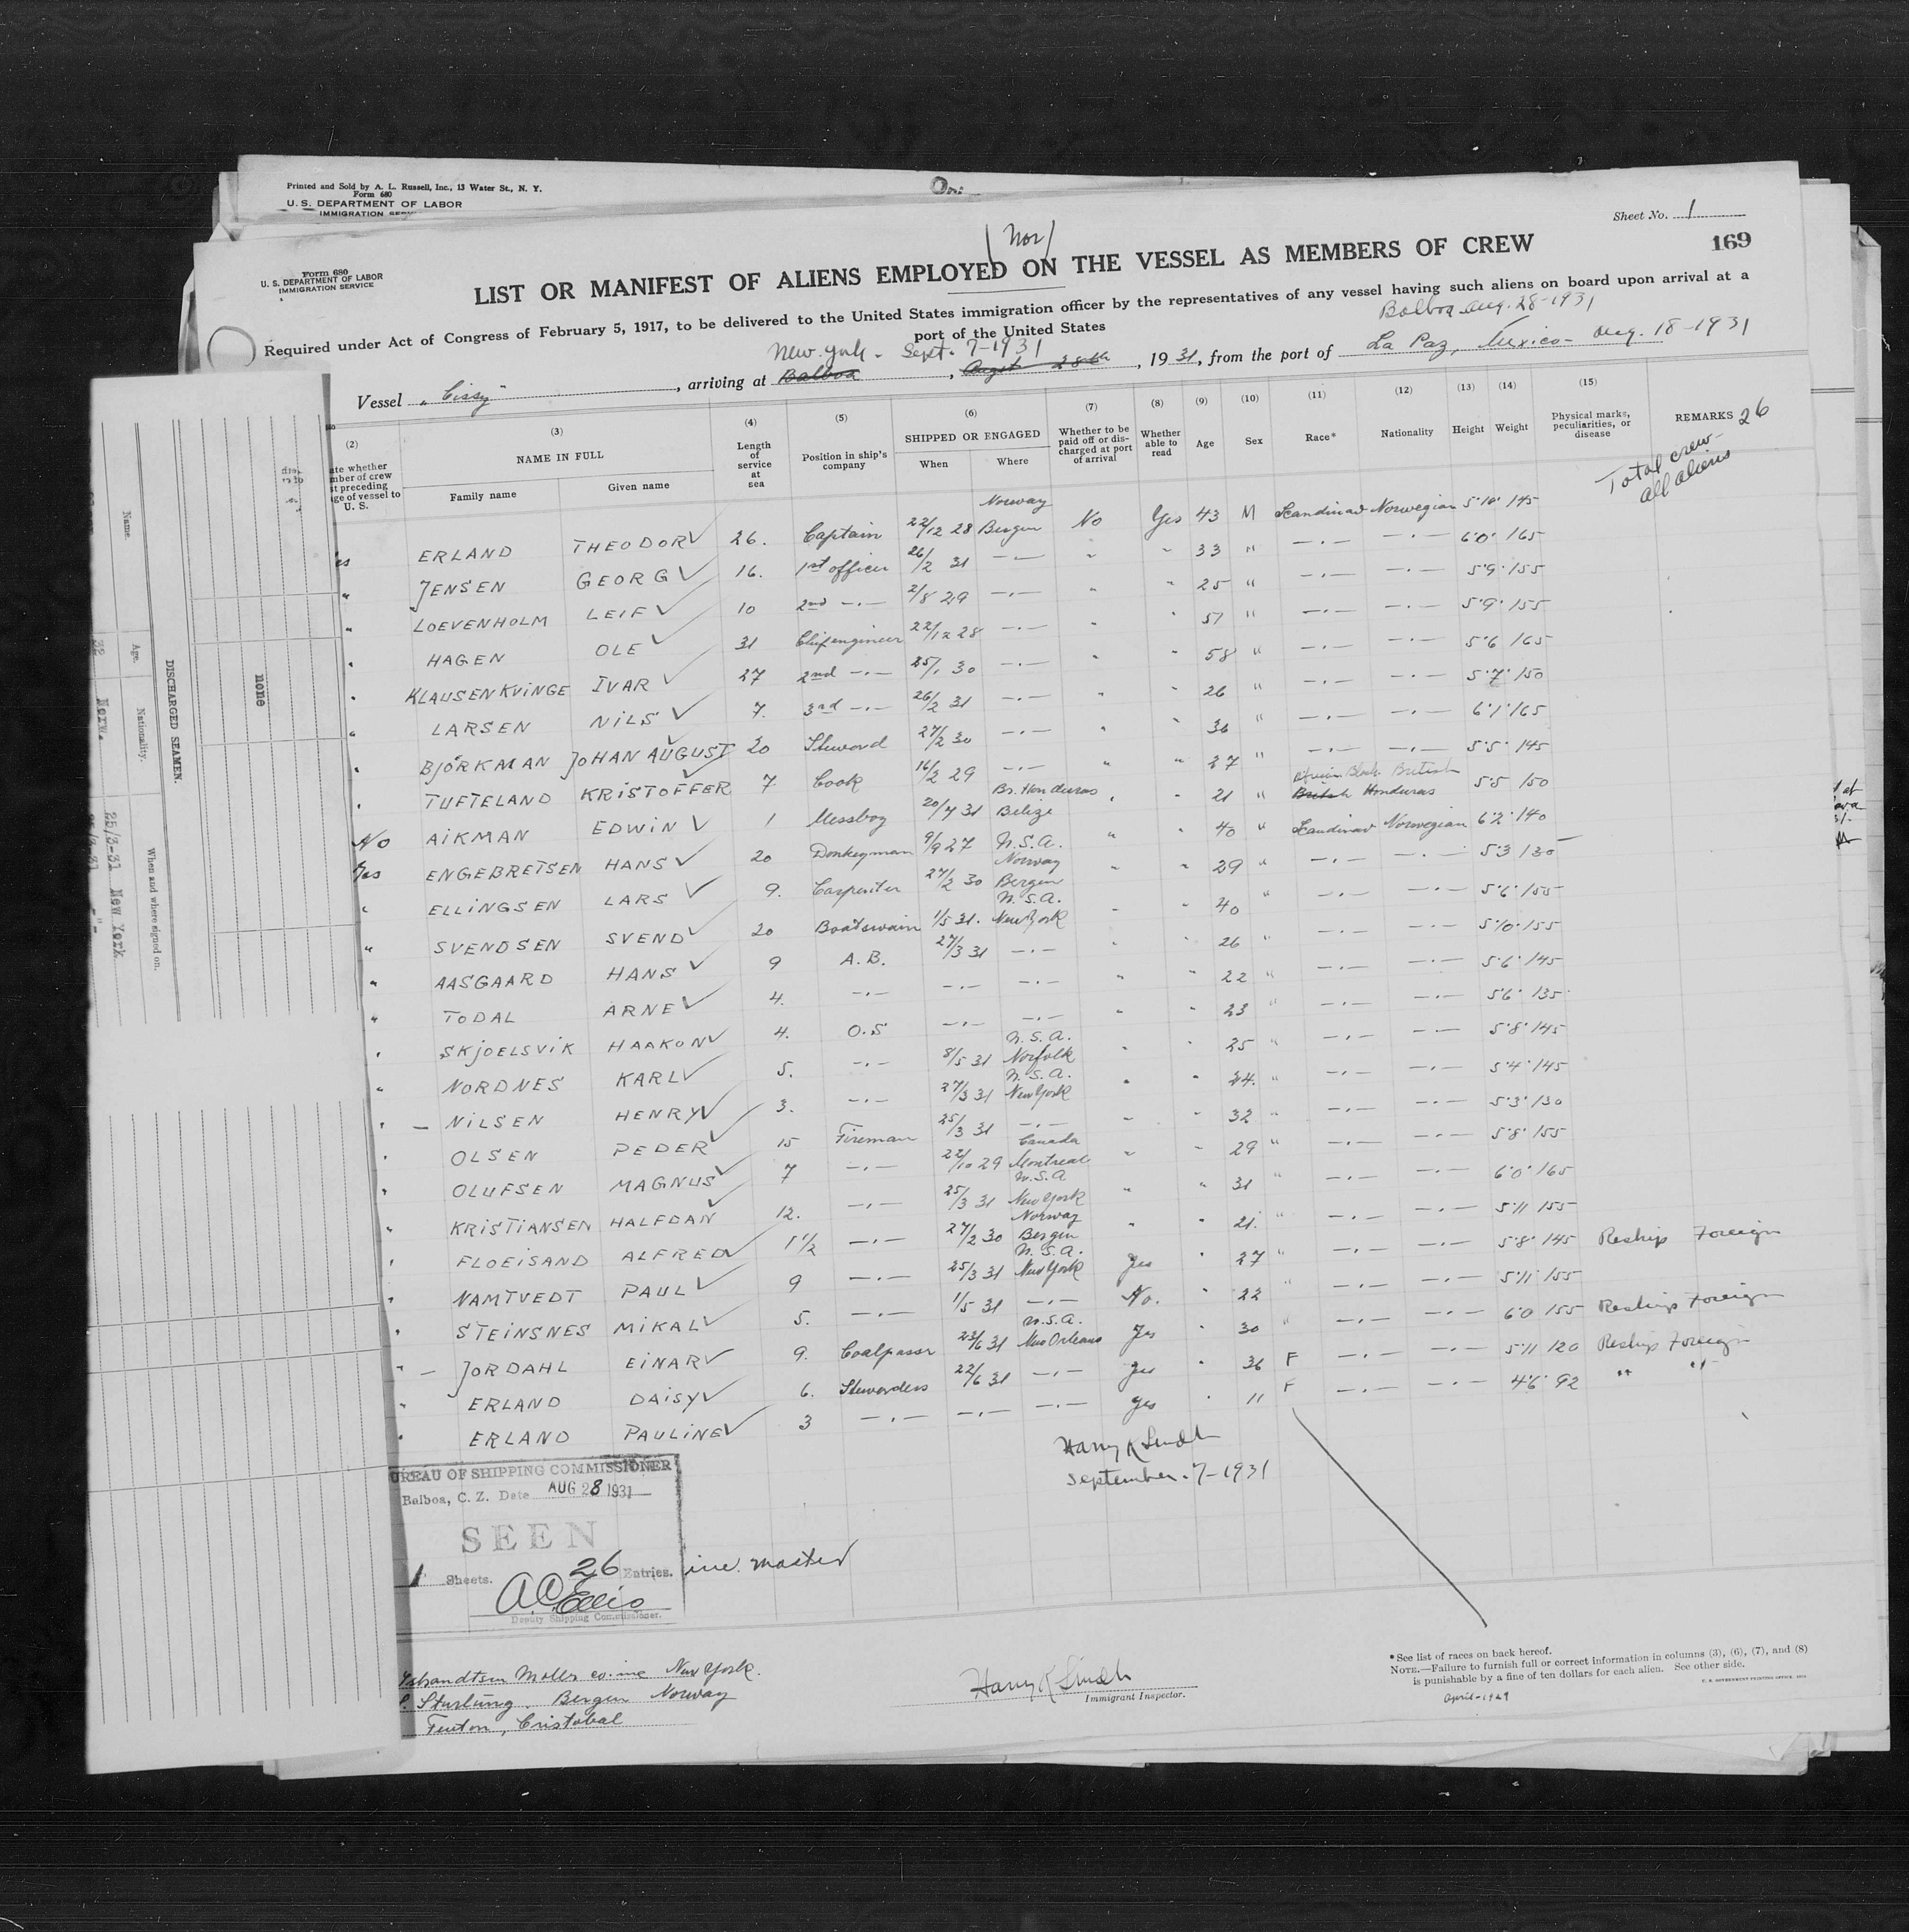 Printed and Sold by A. L. Russell, Inc., 13 Water St., N. Y.
Form 680
U. S. DEPARTMENT OF LABOR
IMMIGRATION SERV
Ori
Sheet No. 1
169
(Nor)
Form 680
U. S. DEPARTMENT OF LABOR
IMMIGRATION SERVICE
LIST OR MANIFEST OF ALIENS EMPLOYED ON THE VESSEL AS MEMBERS OF CREW
Required under Act of Congress of February 5, 1917, to be delivered to the United States immigration officer by the representatives of any vessel having such aliens on board upon arrival at a
port of the United States
Balboa Aug. 28-1931
New York - Sept. 7-1931
Vessel "Cissy", arriving at Balboa, August 28th, 1931, from the port of La Paz, Mexico - Aug. 18-1931
(2) (3) (4) (5) (6) (7) (8) (9) (10) (11) (12) (13) (14) (15)
ate whether mber of crew t preceding ge of vessel to U. S.
NAME IN FULL
Family name Given name
Length of service at sea
Position in ship's company
SHIPPED OR ENGAGED
When Where
Whether to be paid off or discharged at port of arrival
Whether able to read
Age Sex Race* Nationality Height Weight
Physical marks, peculiarities, or disease
REMARKS 26
Total crew-
all aliens
es ERLAND THEODOR 26. Captain 22/12 28 Norway Bergen No Yes 43 M Scandinav Norwegian 5'10" 145
" JENSEN GEORG 16. 1st officer 26/2 31 -.- " " 33 " -.- -.- 6'0" 165
" LOEVENHOLM LEIF 10 2nd -.- 2/8 29 -.- " " 25 " -.- -.- 5'9" 155
" HAGEN OLE 31 Chifengineer 22/12 28 -.- " " 51 " -.- -.- 5'9" 155
" KLAUSEN KVINGE IVAR 27 2nd -.- 25/1 30 -.- " " 58 " -.- -.- 5'6 165
" LARSEN NILS 7. 3rd -.- 26/2 31 -.- " " 26 " -.- -.- 5'7" 150
" BJÖRKMAN JOHAN AUGUST 20 Steword 27/2 30 -.- " " 36 " -.- -.- 6'1" 165
" TUFTELAND KRISTOFFER 7 Cook 16/2 29 -.- " " 27 " -.- -.- 5'5" 145
No AIKMAN EDWIN 1 Messboy 20/7 31 Br. Honduras Belize " " 21 " African Black British British Honduras 5'5 150
Yes ENGEBRETSEN HANS 20 Donkeyman 9/9 27 U.S.A. " " 40 " Scandinav Norwegian 6'2" 140
" ELLINGSEN LARS 9. Carpenter 27/2 30 Norway Bergen " " 29 " -.- -.- 5'3 130
" SVENDSEN SVEND 20 Boatswain 1/5 31. U.S.A. New York " " 40 " -.- -.- 5'6" 155
" AASGAARD HANS 9 A.B. 27/3 31 -.- " " 26 " -.- -.- 5'10" 155
" TODAL ARNE 4. -.- -.- -.- " " 22 " -.- -.- 5'6" 145
" SKJOELSVIK HAAKON 4. O.S -.- -.- " " 23 " -.- -.- 5'6" 135
" NORDNES KARL 5. -.- 8/5 31 U.S.A. Norfolk " " 25 " -.- -.- 5'8" 145
" NILSEN HENRY 3. -.- 27/3 31 U.S.A. New York " " 24. " -.- -.- 5'4" 145
" OLSEN PEDER 15 Fireman 25/3 31 -.- " " 32 " -.- -.- 5'3" 130
" OLUFSEN MAGNUS 7 -.- 22/10 29 Canada Montreal " " 29 " -.- -.- 5'8" 155
" KRISTIANSEN HALFDAN 12. -.- 25/3 31 U.S.A New York " " 31 " -.- -.- 6'0" 165
" FLOEISAND ALFRED 1 1/2 -.- 27/2 30 Norway Bergen " " 21. " -.- -.- 5'11 155
" NAMTVEDT PAUL 9 -.- 25/3 31 U.S.A. New York Yes " 27 " -.- -.- 5'8" 145 Reship Foreign
" STEINSNES MIKAL 5. -.- 1/5 31 -.- No. " 22 " -.- -.- 5'11" 155
" JORDAHL EINAR 9. Coalpassr 23/6 31 U.S.A. New Orleans Yes " 30 " -.- 6'0 155 Reship Foreign
" ERLAND DAISY 6. Stewordess 22/6 31 -.- Yes " 36 F -.- -.- 5'11 120 Reship Foreign
" ERLAND PAULINE 3 -.- -.- -.- Yes " 11 F -.- -.- 4'6" 92 " "
Harry K Lindh
September. 7-1931
UREAU OF SHIPPING COMMISSIONER
Balboa, C. Z. Date AUG 28 1931
SEEN
1 Sheets. 26 Entries. inc. master
A.C. Ellis
Deputy Shipping Commissioner.
New York.
Bergen Norway
Fenton, Cristobal
Harry K Lindh
Immigrant Inspector.
*See list of races on back hereof.
NOTE.—Failure to furnish full or correct information in columns (3), (6), (7), and (8)
is punishable by a fine of ten dollars for each alien. See other side.
U. S. GOVERNMENT PRINTING OFFICE
April-1929
DISCHARGED SEAMEN.
Name. Age. Nationality. When and where signed on.
none
32 Norw. 25/3-31 New York